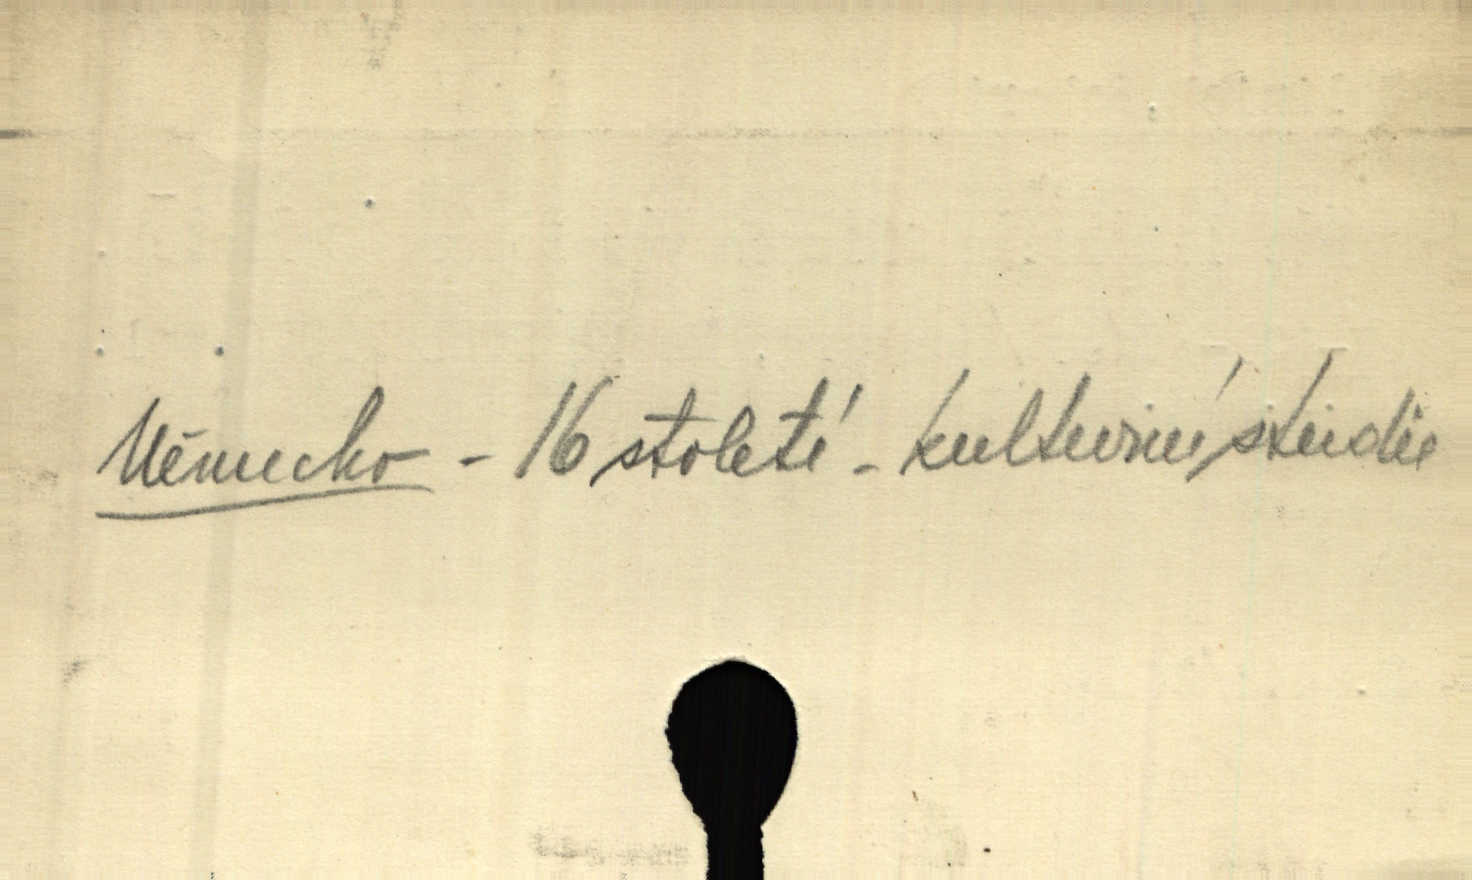 Německo - 16 století - kulturní studie